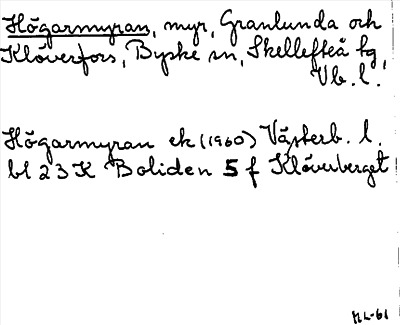 Högarmyran, myr, Granlunda och
Klöverfors, Byske sn, Skellefteå tg,
Vb. l.
Högarmyran ek (1960) Västerb. l.
bl 23 K Boliden 5 f Klöverberget
HL-61